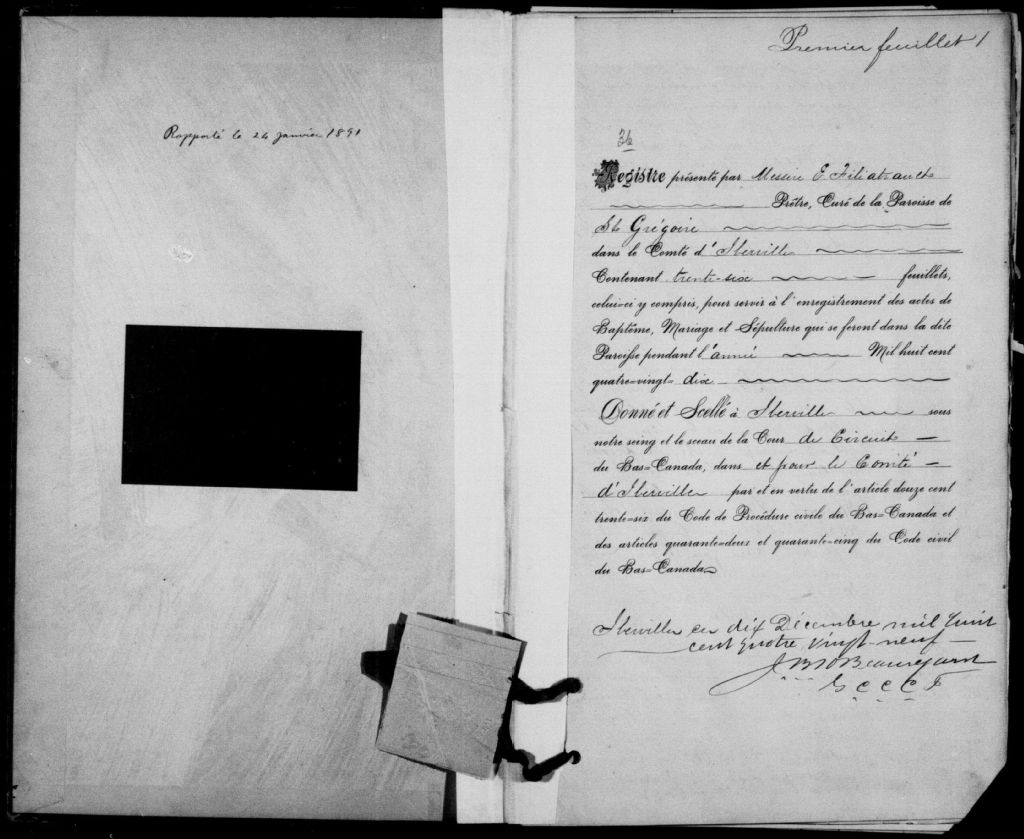 Rapporté le 24 janvier 1891
Premier feuillet 1
36
Registre présenté par Messire E. Filiatrault
Prêtre, Curé de la Paroisse de
St Grégoire
dans le Comté d'Iberville
Contenant trente-six feuillets,
celui=ci y compris, pour servir à l'enregistrement des actes de
Baptême, Mariage et Sépulture qui se feront dans la dite
Paroisse pendant l'année Mil huit cent
quatre=vingt= dix
Donné et Scellé à Iberville sous
notre seing et le sceau de la Cour de Circuit
du Bas=Canada, dans et pour le Comté
d'Iberville par et en vertu de l'article douze cent
trente=six du Code de Procédure civile du Bas=Canada et
des articles quarante=deux et quarante=cinq du Code civil
du Bas=Canada
Iberville ce dix Décembre mil huit
cent quatre vingt-neuf